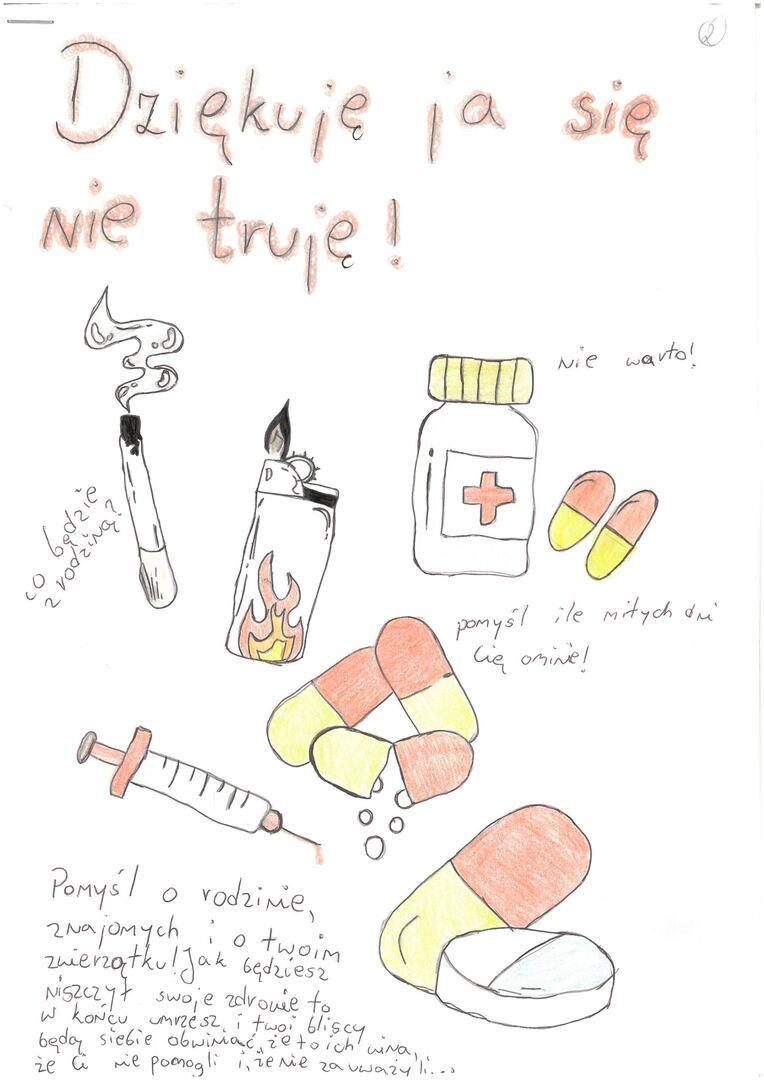 2
Dziękuję ja się
nie truję!
nie warto!
co będzie
z rodziną?
pomyśl ile miłych dni
Cię ominie!
Pomyśl o rodzinie,
znajomych i o twoim
zwierzątku! Jak będziesz
niszczył swoje zdrowie to
w końcu umrzesz i twoi bliscy
będą siebie obwiniać, że to ich wina,
że Ci nie pomogli i, że nie zauważyli...